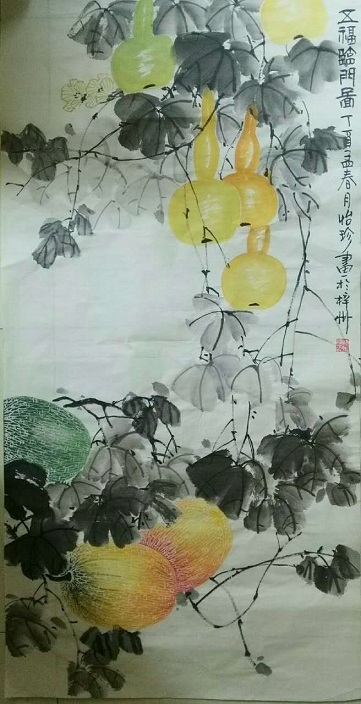 五福臨門图丁酉孟春月怡珍画於梓州